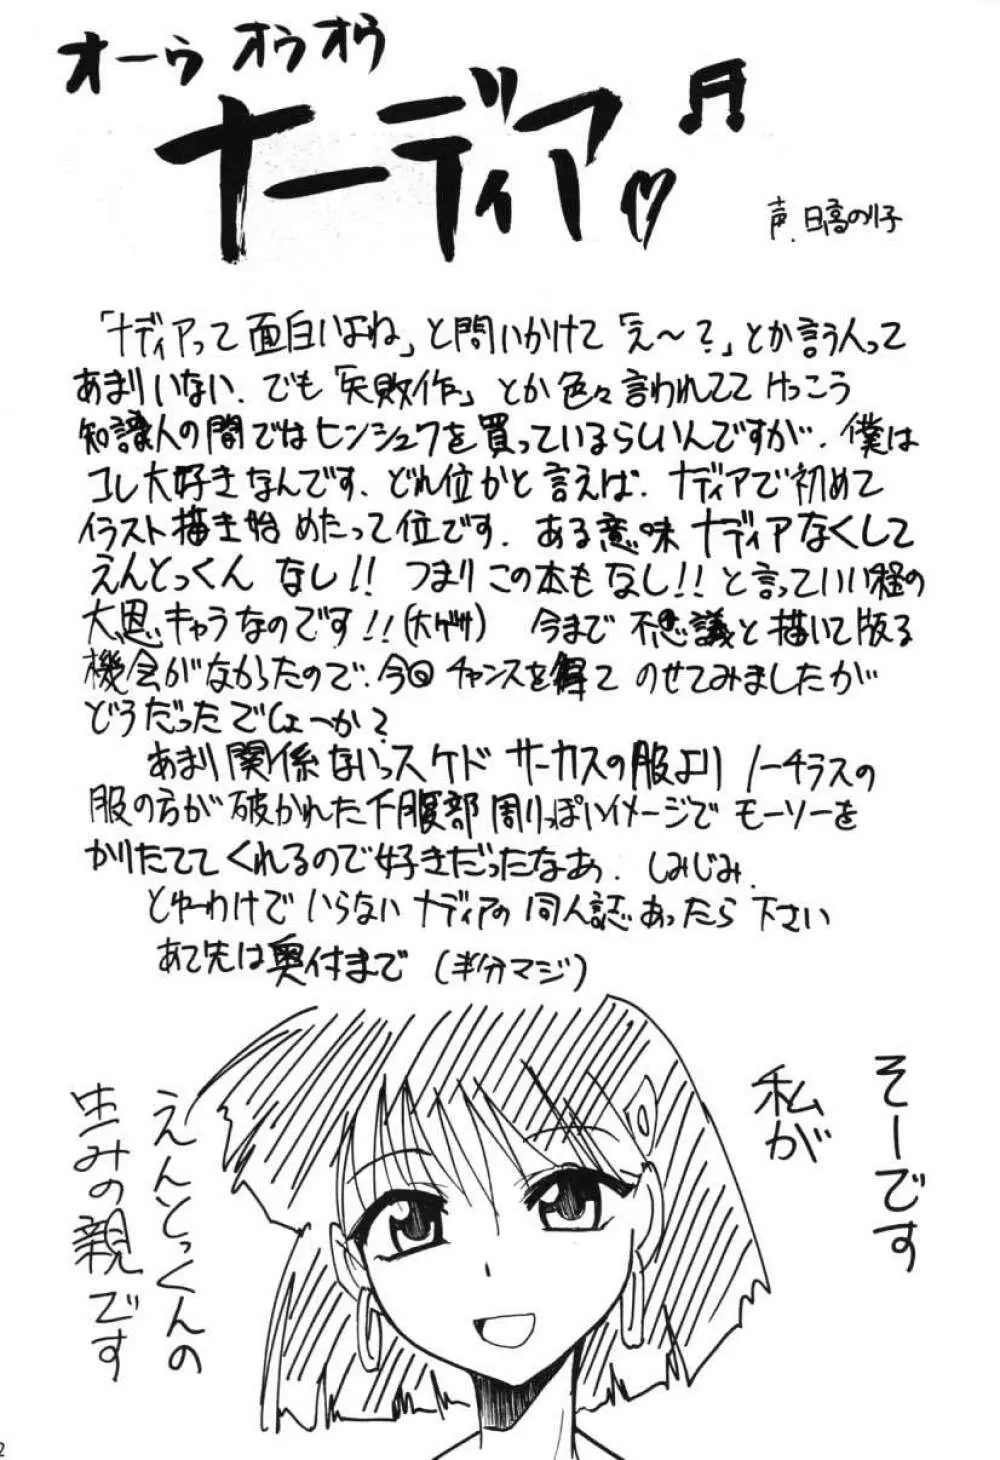 オーゥ オゥオゥ
ナーディア♡♬
声.日高のり子
「ナディアって面白いよね」と問いかけて「え〜?」とか言う人って
あまりいない.でも「失敗作」とか色々言われてて けっこう
知識人の間ではヒンシュクを買っているらしいんですが.僕は
コレ大好きなんです.どれ位かと言えば.ナディアで初めて
イラスト描き始めたって位です.ある意味ナディアなくして
えんとっくん なし!! つまりこの本もなし!!と言っていい程の
大恩キャラなのです!!(大ゲサ) 今まで不思議と描いて版る
機会がなかったので.今回チャンスを得て のせてみましたが
どうだったでしょーか?
あまり関係ないっスケド サーカスの服より ノーチラスの
服の方が破かれた下腹部周りっぽいイメージで モーソーを
かりたててくれるので好きだったなあ.しみじみ.
とゆーわけで いらないナディアの同人誌あったら下さい
あて先は奥付まで(半分マジ)
そーです
私が
えんとっくんの
生みの親です
2